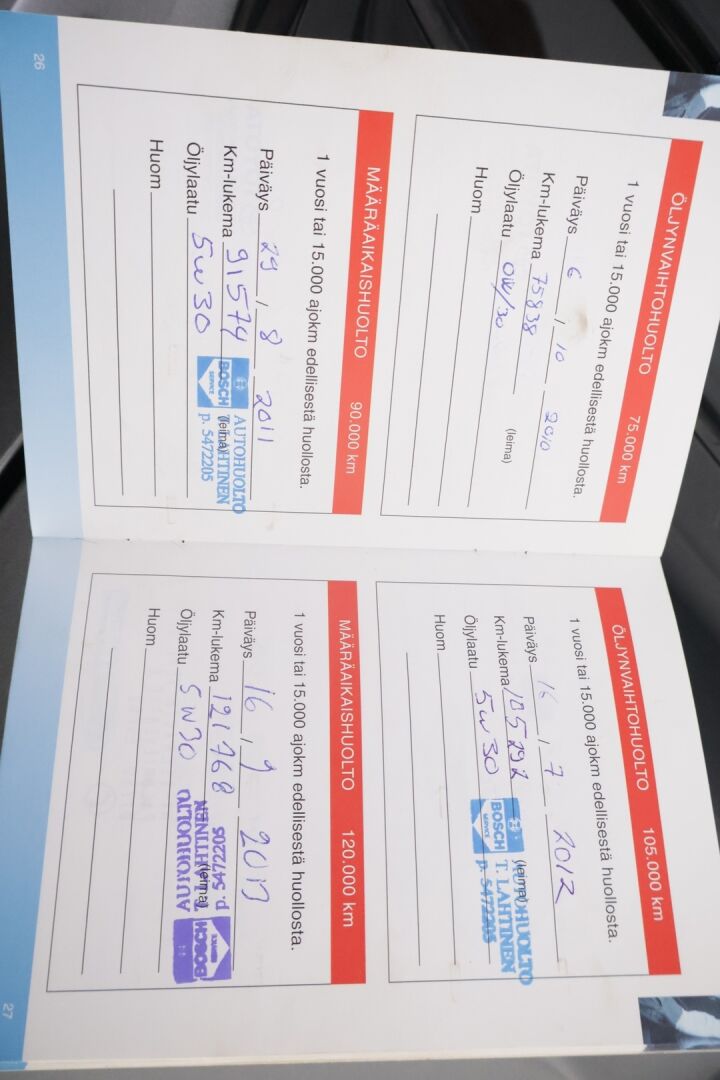 ÖLJYNVAIHTOHUOLTO 75.000 km
1 vuosi tai 15.000 ajokm edellisestä huollosta.
Päiväys 6 / 10 2010
Km-lukema 75838
Öljylaatu 0W/30 (leima)
Huom
MÄÄRÄAIKAISHUOLTO 90.000 km
1 vuosi tai 15.000 ajokm edellisestä huollosta.
Päiväys 29 / 8 2011
Km-lukema 91574
Öljylaatu 5w30 (leima)
Huom
BOSCH
SERVICE
AUTOHUOLTO
T. LAHTINEN
p. 5472205
26
ÖLJYNVAIHTOHUOLTO 105.000 km
1 vuosi tai 15.000 ajokm edellisestä huollosta.
Päiväys 16 / 7 2012
Km-lukema 105292
Öljylaatu 5w30 (leima)
Huom
BOSCH
SERVICE
AUTOHUOLTO
T. LAHTINEN
p. 5472205
MÄÄRÄAIKAISHUOLTO 120.000 km
1 vuosi tai 15.000 ajokm edellisestä huollosta.
Päiväys 16 / 9 2013
Km-lukema 121768
Öljylaatu 5W30 (leima)
Huom
BOSCH
SERVICE
AUTOHUOLTO
T. LAHTINEN
p. 5472205
27